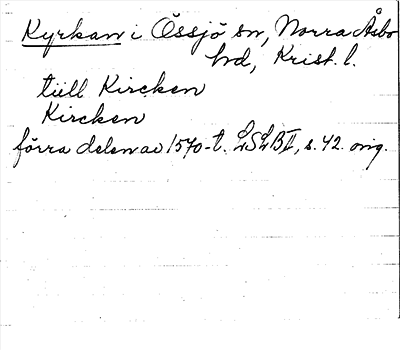 Kyrkan i Össjö sn, Norra Åsbo
hd, Krist. l.
tiill Kircken
Kircken
förra delen av 1570-t. LSLB II, s. 42. orig.